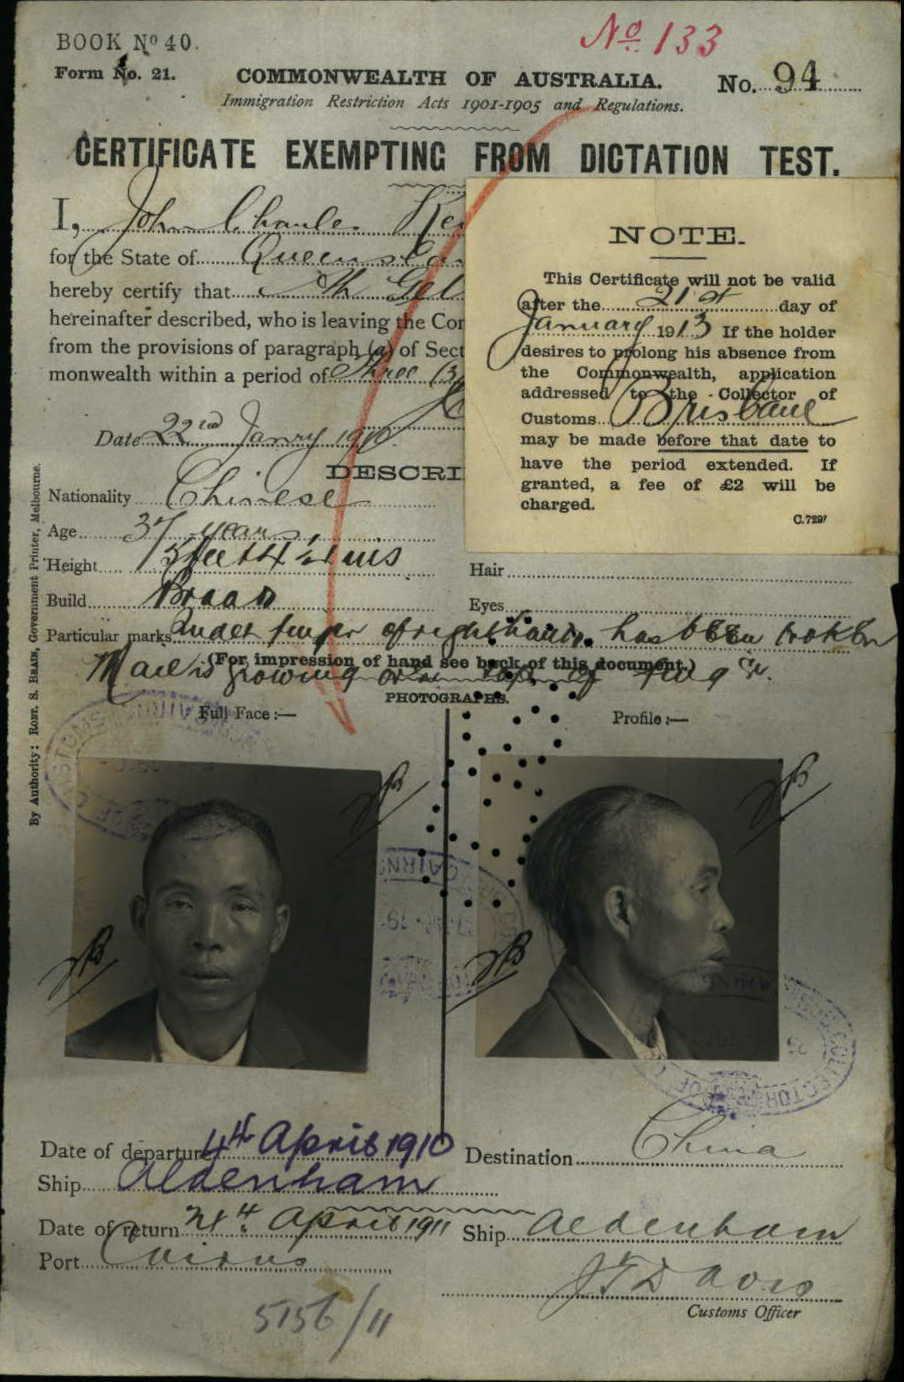 BOOK No 40.
No 133
Form No. 21.
COMMONWEALTH OF AUSTRALIA.
No. 94
Immigration Restriction Acts 1901-1905 and Regulations.
CERTIFICATE EXEMPTING FROM DICTATION TEST.
I, John Charles
for the State of
hereby certify that Ah
hereinafter described, who is leaving the Com
from the provisions of paragraph (a) of Sect
monwealth within a period of Three (3
Date 22nd Janry 1910.
NOTE.
This Certificate will not be valid
after the 21st day of
January 1913 If the holder
desires to prolong his absence from
the Commonwealth, application
addressed to the Collector of
Customs Brisbane
may be made before that date to
have the period extended. If
granted, a fee of £2 will be
charged.
C.7297
DESCRI
Nationality Chinese
Age 37 years
Height 5 feet 4 1/2 ins
Hair
Build Broad
Eyes
Particular marks Index finger of right hand has been broken
(For impression of hand see back of this document.)
Nail is growing on top of finger.
PHOTOGRAPHS.
Full Face :—
Profile :—
By Authority: ROBT. S. BRAIN, Government Printer, Melbourne.
CAIRNS
Date of departure 4th April 1910
Destination China
Ship Aldenham
Date of return April 1911 Ship Aldenham
Port Cairns
Davis
Customs Officer
5156/11